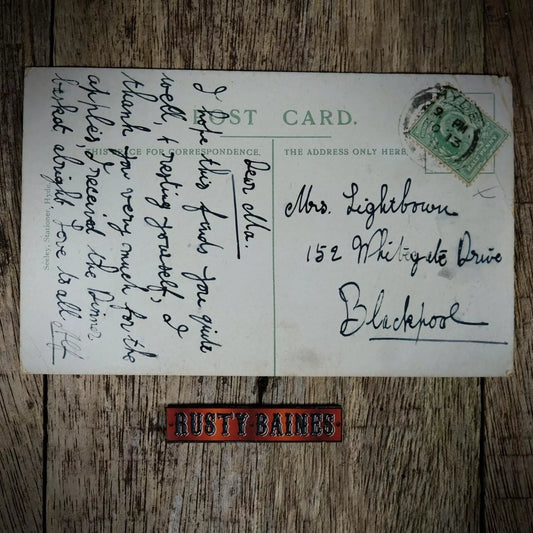 POST CARD.
THIS SPACE FOR CORRESPONDENCE.
THE ADDRESS ONLY HERE.
Dear Ma.
I hope this finds you quite
well, & resting yourself, I
thank you very much for the
apples, I received the Dinner
basket alright Love to all Alf
Mrs. Lightbown
152 Whitegate Drive
Blackpool
Stationer, Hyde
HYDE
RUSTY BAINES